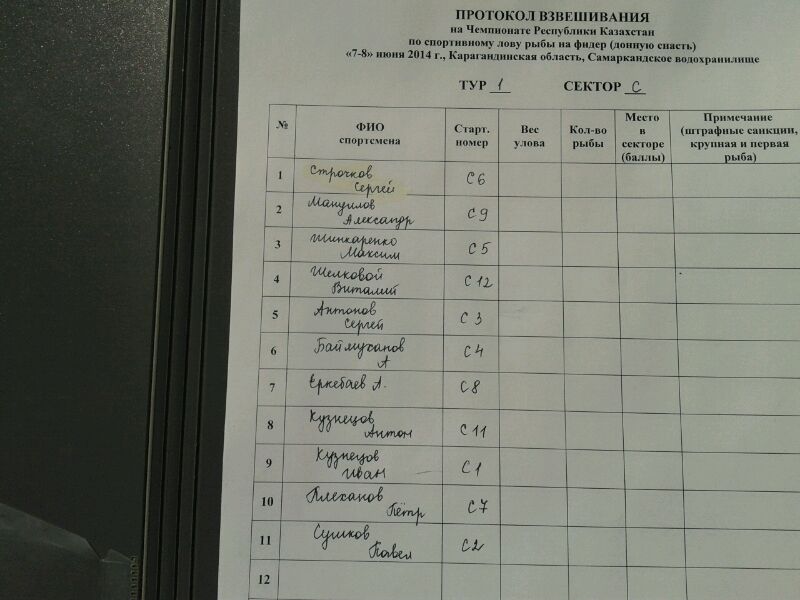 ПРОТОКОЛ ВЗВЕШИВАНИЯ
на Чемпионате Республики Казахстан
по спортивному лову рыбы на фидер (донную снасть)
«7-8» июня 2014 г., Карагандинская область, Самаркандское водохранилище
ТУР 1 СЕКТОР С
№ ФИО спортсмена Старт. номер Вес улова Кол-во рыбы Место в секторе (баллы) Примечание (штрафные санкции, крупная и первая рыба)
1 Строчков Сергей С6
2 Мануилов Александр С9
3 Шинкаренко Максим С5
4 Шелковой Виталий С12
5 Антонов Сергей С3
6 Баймуханов А С4
7 Еркебаев А. С8
8 Кузнецов Антон С11
9 Кузнецов Иван С1
10 Плеханов Пётр С7
11 Сушков Павел С2
12